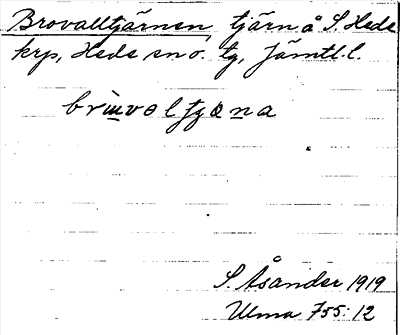 Brovalltjärnen, tjärn å S. Hede
krp, Hede sn o. tg, Jämtl. l.
S. Åsander 1919
Ulma 755:12